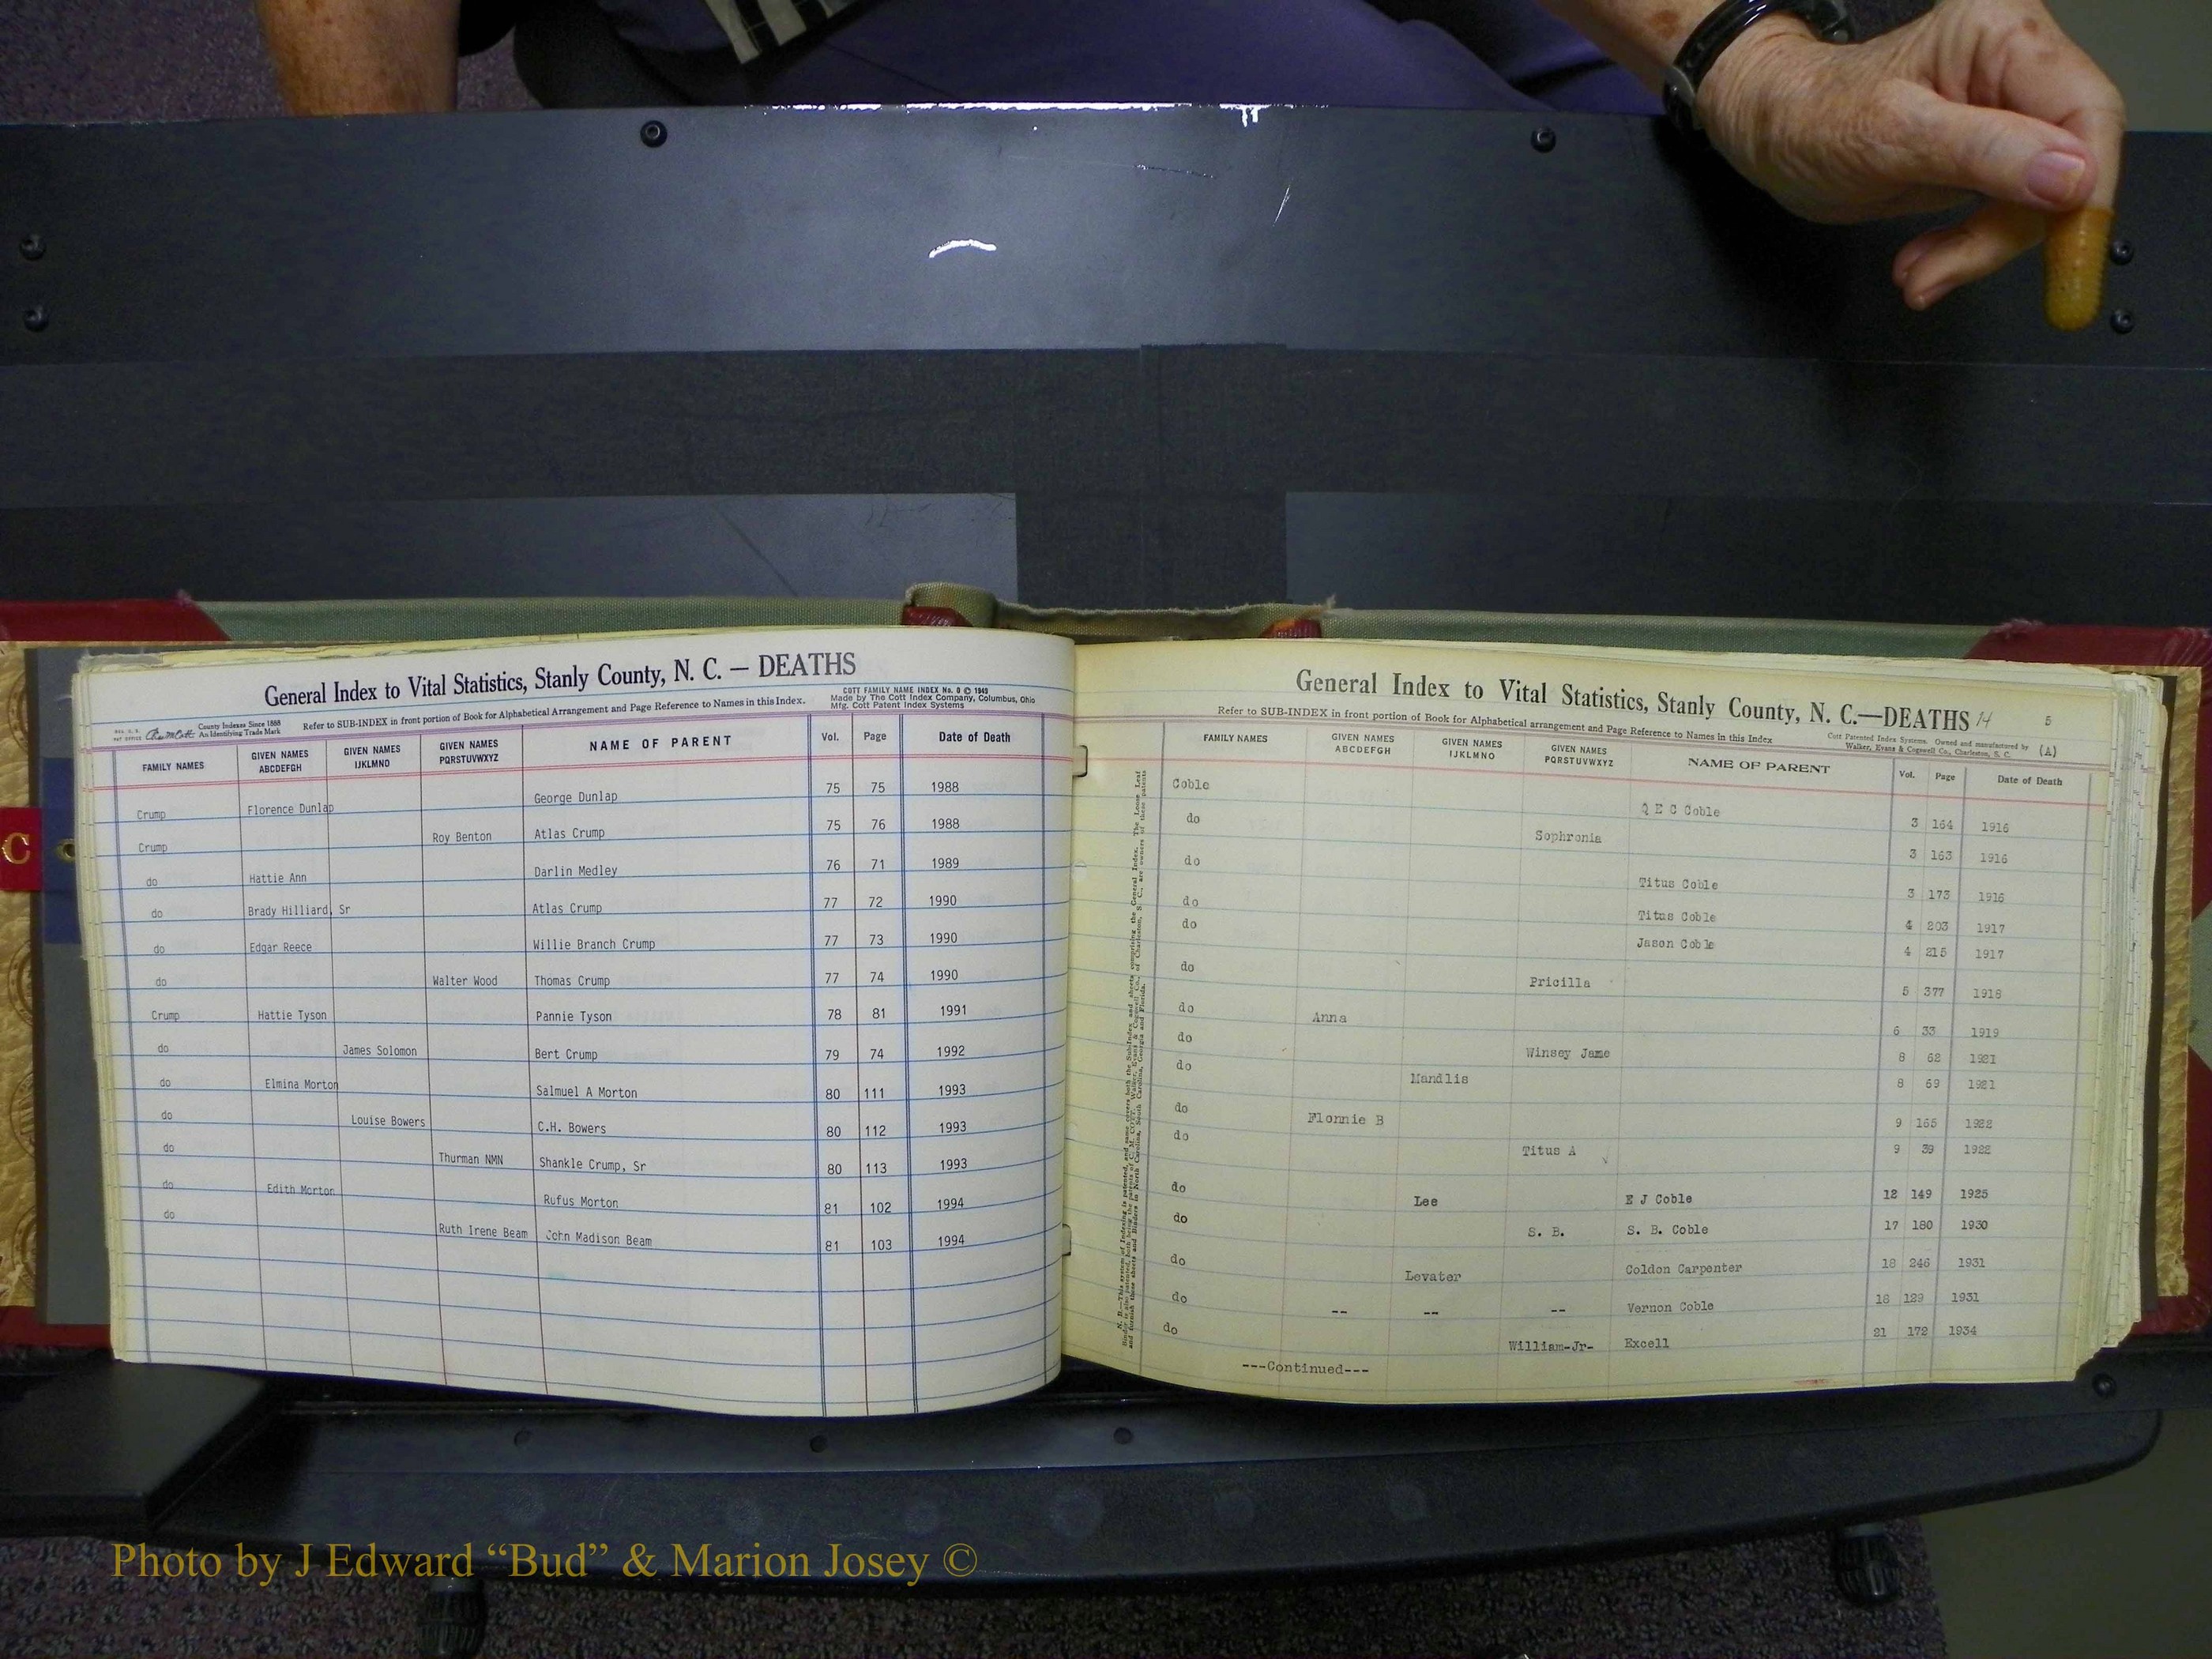 General Index to Vital Statistics, Stanly County, N. C. — DEATHS
COTT FAMILY NAME INDEX No. 0 © 1949
Made by The Cott Index Company, Columbus, Ohio
Mfg. Cott Patent Index Systems
County Indexes Since 1888
An Identifying Trade Mark
Refer to SUB-INDEX in front portion of Book for Alphabetical Arrangement and Page Reference to Names in this Index.
FAMILY NAMES GIVEN NAMES ABCDEFGH GIVEN NAMES IJKLMNO GIVEN NAMES PQRSTUVWXYZ NAME OF PARENT Vol. Page Date of Death
Crump Florence Dunlap George Dunlap 75 75 1988
Crump Roy Benton Atlas Crump 75 76 1988
do Hattie Ann Darlin Medley 76 71 1989
do Brady Hilliard, Sr Atlas Crump 77 72 1990
do Edgar Reece Willie Branch Crump 77 73 1990
do Walter Wood Thomas Crump 77 74 1990
Crump Hattie Tyson Pannie Tyson 78 81 1991
do James Solomon Bert Crump 79 74 1992
do Elmina Morton Salmuel A Morton 80 111 1993
do Louise Bowers C.H. Bowers 80 112 1993
do Thurman NMN Shankle Crump, Sr 80 113 1993
do Edith Morton Rufus Morton 81 102 1994
do Ruth Irene Beam John Madison Beam 81 103 1994
C
General Index to Vital Statistics, Stanly County, N. C.—DEATHS 14 5
Refer to SUB-INDEX in front portion of Book for Alphabetical arrangement and Page Reference to Names in this Index
Cott Patented Index Systems. Owned and manufactured by
Walker, Evans & Cogswell Co., Charleston, S. C.
(A)
FAMILY NAMES GIVEN NAMES ABCDEFGH GIVEN NAMES IJKLMNO GIVEN NAMES PQRSTUVWXYZ NAME OF PARENT Vol. Page Date of Death
Coble Q E C Coble 3 164 1916
do Sophronia 3 163 1916
do Titus Coble 3 173 1916
do Titus Coble 4 203 1917
do Jason Coble 4 215 1917
do Pricilla 5 377 1918
do Anna 6 33 1919
do Winsey Jame 8 62 1921
do Mandlis 8 69 1921
do Flonnie B 9 165 1922
do Titus A 9 39 1922
do Lee E J Coble 12 149 1925
do S. B. S. B. Coble 17 180 1930
do Levater Coldon Carpenter 18 246 1931
do -- -- -- Vernon Coble 18 129 1931
do William-Jr- Excell 21 172 1934
---Continued---
Photo by J Edward “Bud” & Marion Josey ©